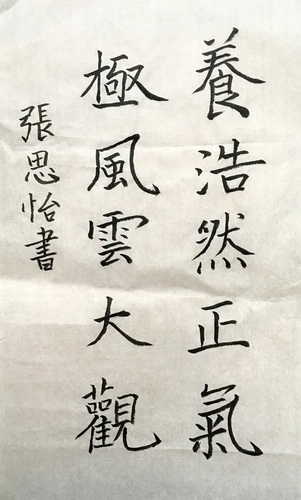 養浩然正氣
極風雲大觀
張思怡書